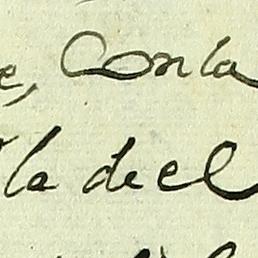 e, Con la
le de el